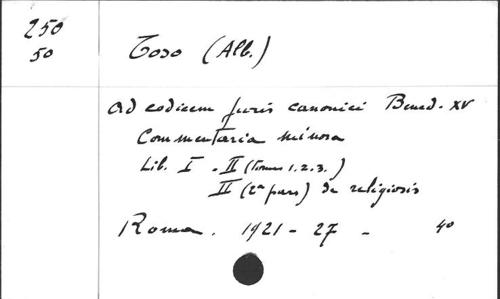 250
50
Toso (Alb.)
Ad codicem Juris canonici Bened. XV
Commentaria minora
Lib. I - II (Tomus 1.2.3.)
II (2ª pars) De religiosis
Roma. 1921 - 27 - 4º